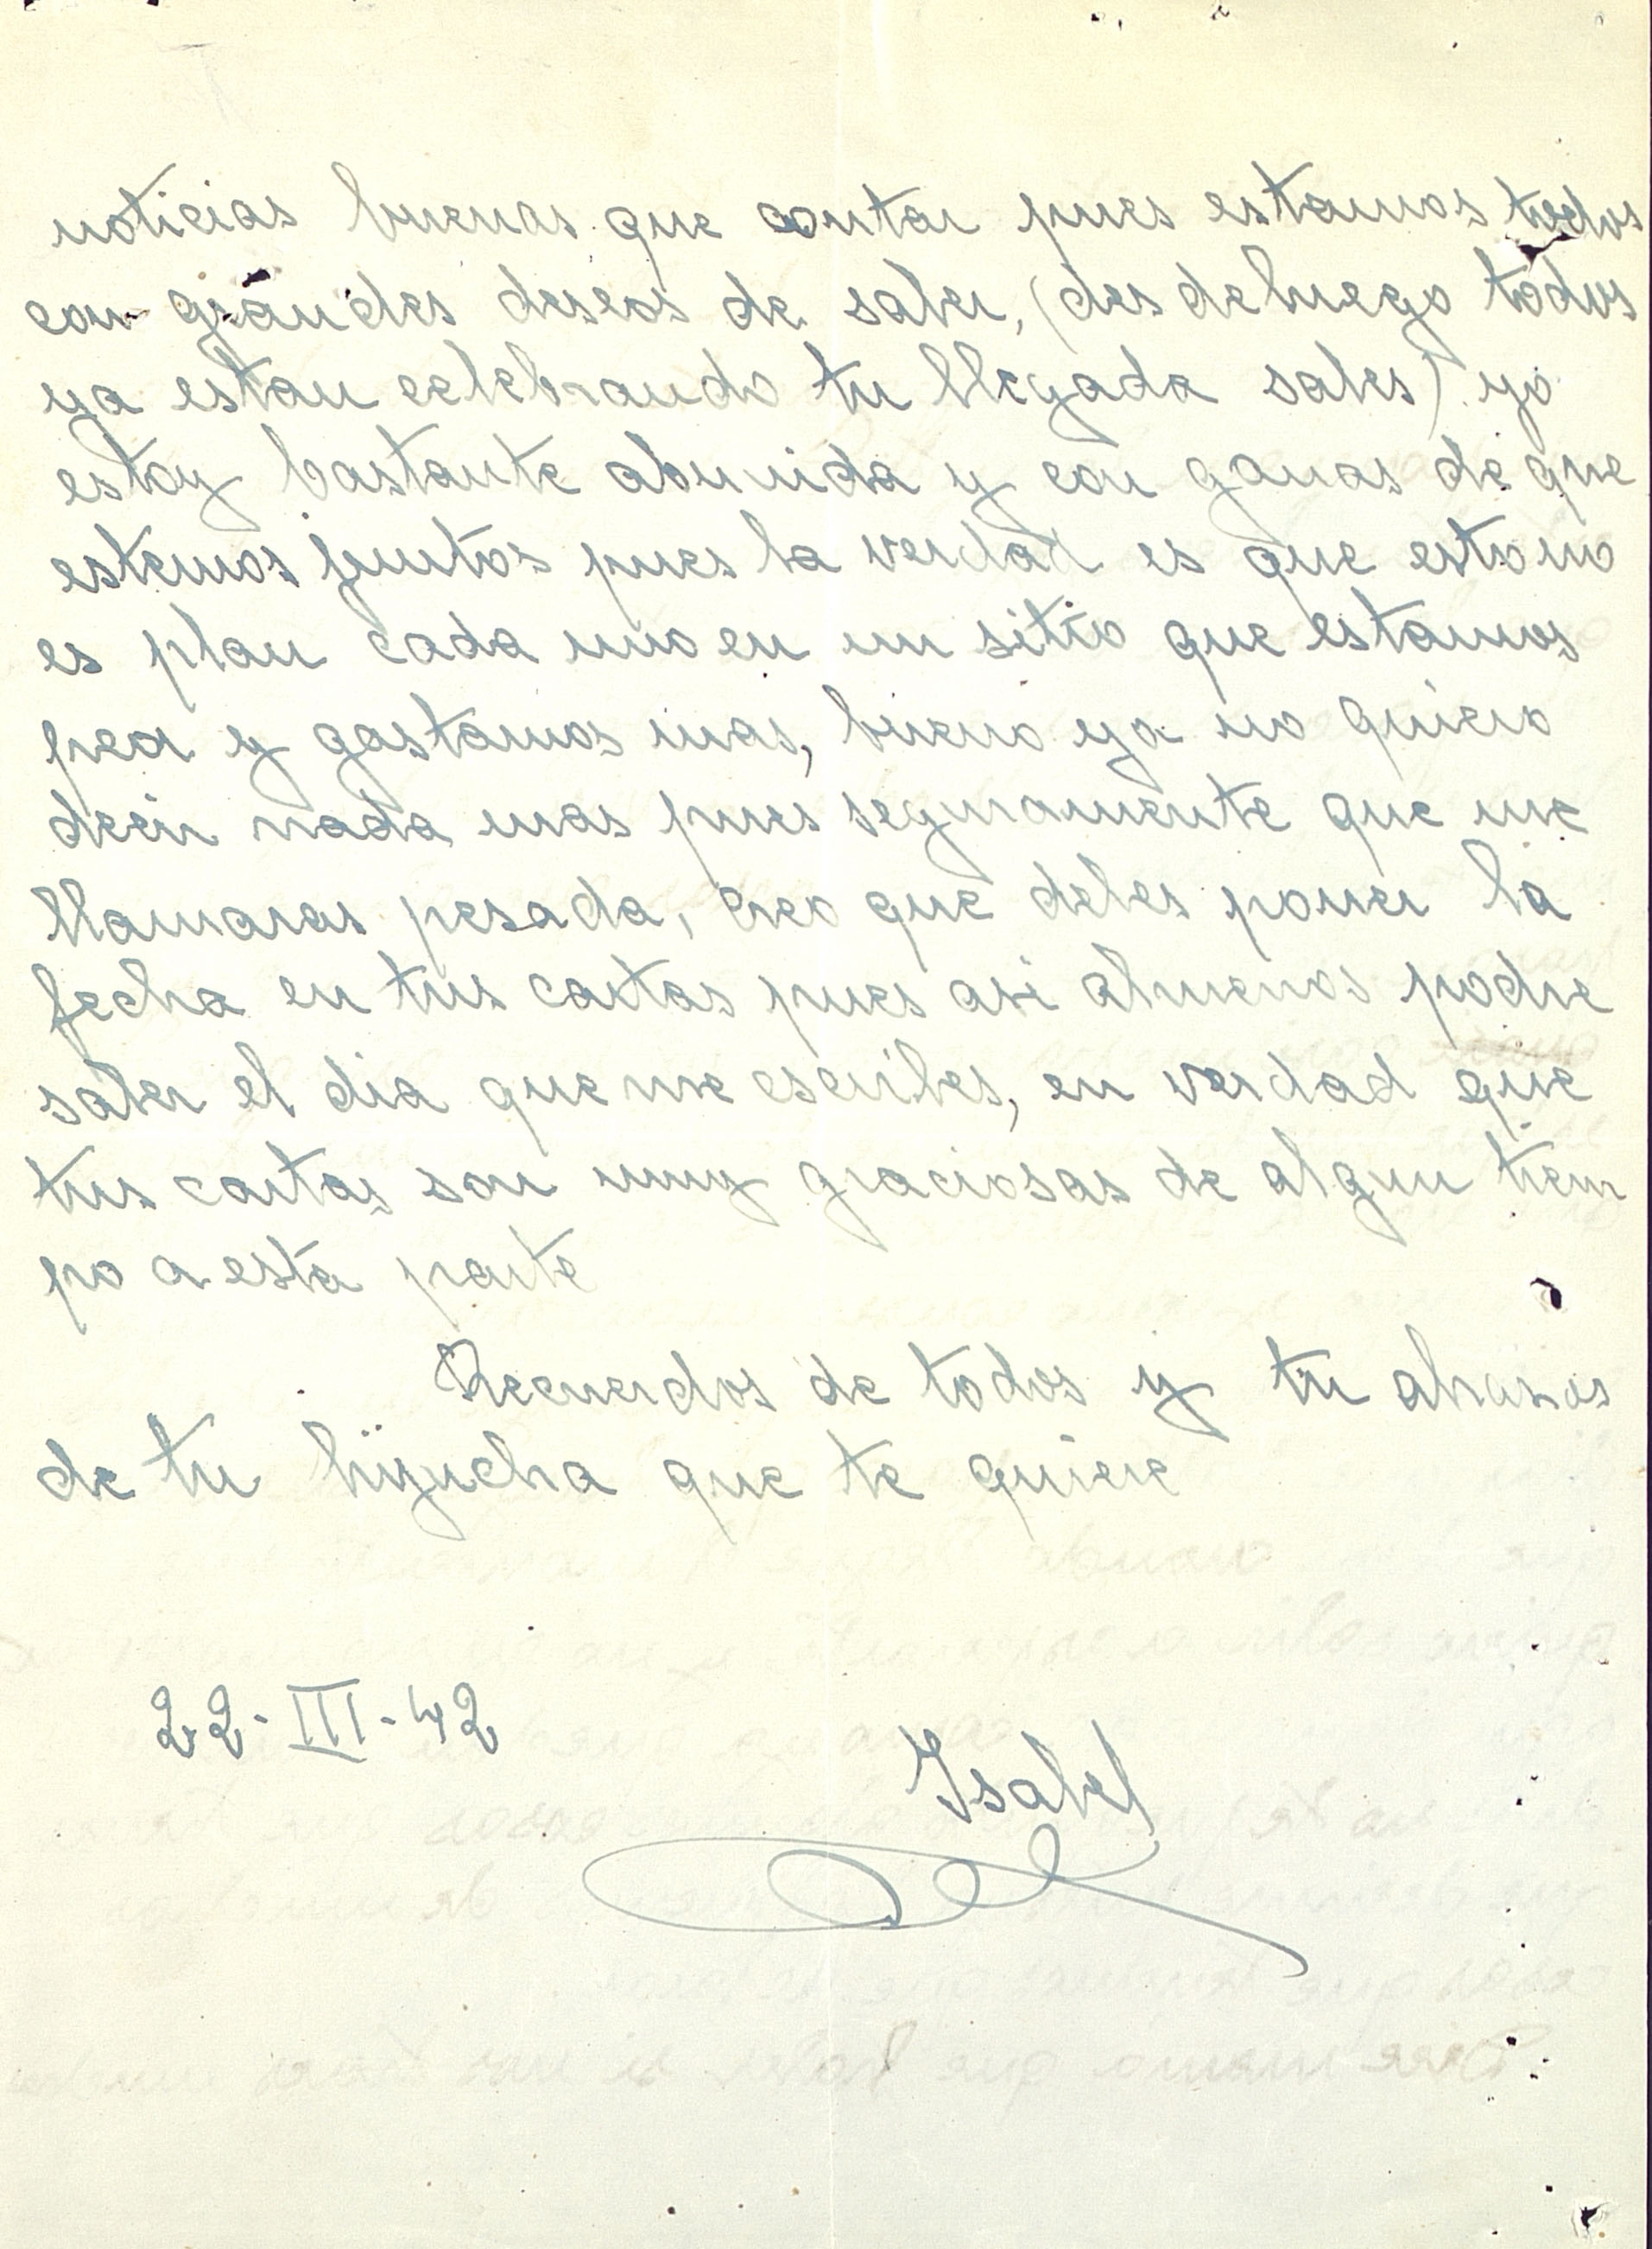 noticias buenas que contar pues estamos todos
con grandes deseos de saber, (desdeluego todos
ya estan celebrando tu llegada sabes) yo
estoy bastante aburrida y con ganas de que
estemos juntos pues la verdad es que esto no
es plan cada uno en un sitio que estamos
peor y gastamos mas, bueno ya no quiero
decir nada mas pues seguramente que me
llamaras pesada, creo que debes poner la
fecha en tus cartas pues asi almenos podre
saber el dia que me escribes, en verdad que
tus cartas son muy graciosas de algun tiem
po a esta parte
Recuerdos de todos y tu abrasos
de tu hijucha que te quiere
22-III-42
Isabel